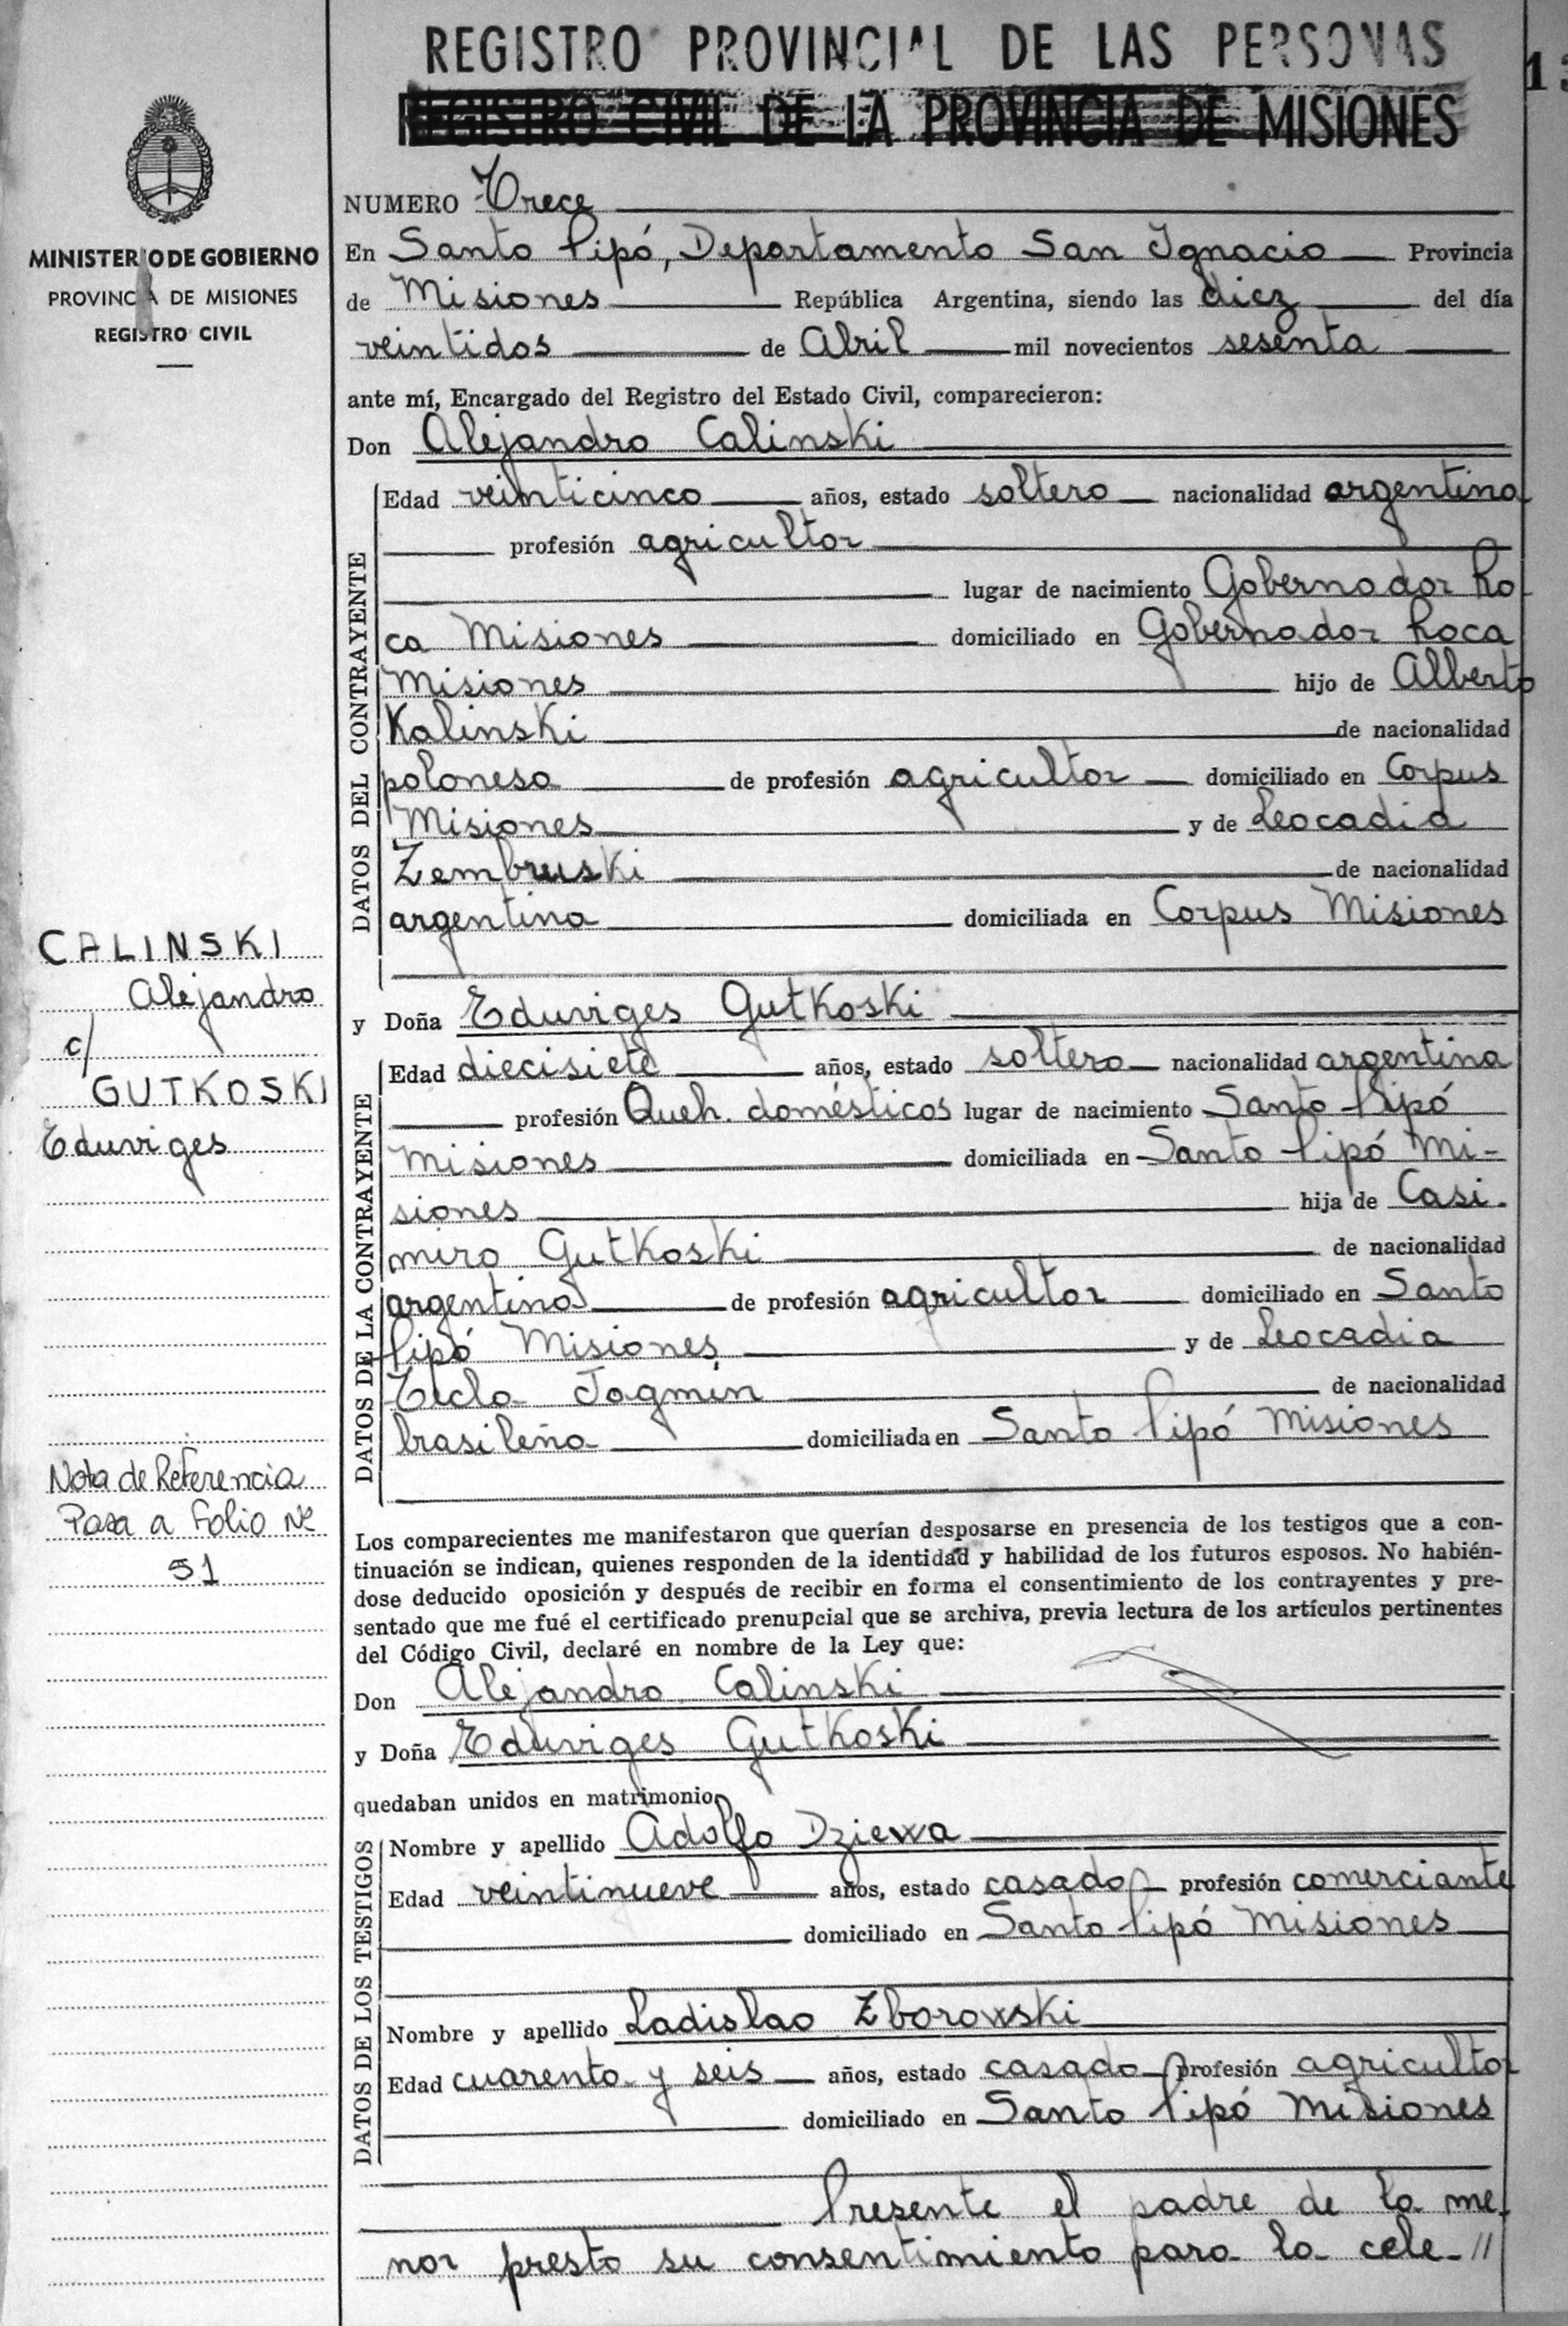 REGISTRO PROVINCIAL DE LAS PERSONAS
REGISTRO CIVIL DE LA PROVINCIA DE MISIONES
13
MINISTERIO DE GOBIERNO
PROVINCIA DE MISIONES
REGISTRO CIVIL
NUMERO Trece
En Santo Pipó, Departamento San Ignacio Provincia
de Misiones República Argentina, siendo las diez del día
veintidos de Abril mil novecientos sesenta
ante mí, Encargado del Registro del Estado Civil, comparecieron:
Don Alejandro Calinski
DATOS DEL CONTRAYENTE
Edad veinticinco años, estado soltero nacionalidad argentina
profesión agricultor
lugar de nacimiento Gobernador Ro
ca Misiones domiciliado en Gobernador Roca
Misiones hijo de Alberto
Kalinski de nacionalidad
polonesa de profesión agricultor domiciliado en Corpus
Misiones y de Leocadia
Zembruski de nacionalidad
argentina domiciliada en Corpus Misiones
CALINSKI
Alejandro
c/
GUTKOSKI
Eduviges
y Doña Eduviges Gutkoski
DATOS DE LA CONTRAYENTE
Edad diecisiete años, estado soltera nacionalidad argentina
profesión Queh. domésticos lugar de nacimiento Santo Pipó
Misiones domiciliada en Santo Pipó Mi-
siones hija de Casi-
miro Gutkoski de nacionalidad
argentina de profesión agricultor domiciliado en Santo
Pipó Misiones y de Leocadia
Tecla Jagmin de nacionalidad
brasileña domiciliada en Santo Pipó Misiones
Nota de Referencia
Pasa a Folio Nº
51
Los comparecientes me manifestaron que querían desposarse en presencia de los testigos que a con-
tinuación se indican, quienes responden de la identidad y habilidad de los futuros esposos. No habién-
dose deducido oposición y después de recibir en forma el consentimiento de los contrayentes y pre-
sentado que me fué el certificado prenupcial que se archiva, previa lectura de los artículos pertinentes
del Código Civil, declaré en nombre de la Ley que:
Don Alejandro Calinski
y Doña Eduviges Gutkoski
quedaban unidos en matrimonio
DATOS DE LOS TESTIGOS
Nombre y apellido Adolfo Dziewa
Edad veintinueve años, estado casado profesión comerciante
domiciliado en Santo Pipó Misiones
Nombre y apellido Ladislao Zborowski
Edad cuarenta y seis años, estado casado profesión agricultor
domiciliado en Santo Pipó Misiones
Presente el padre de la me-
nor presta su consentimiento para la cele-//